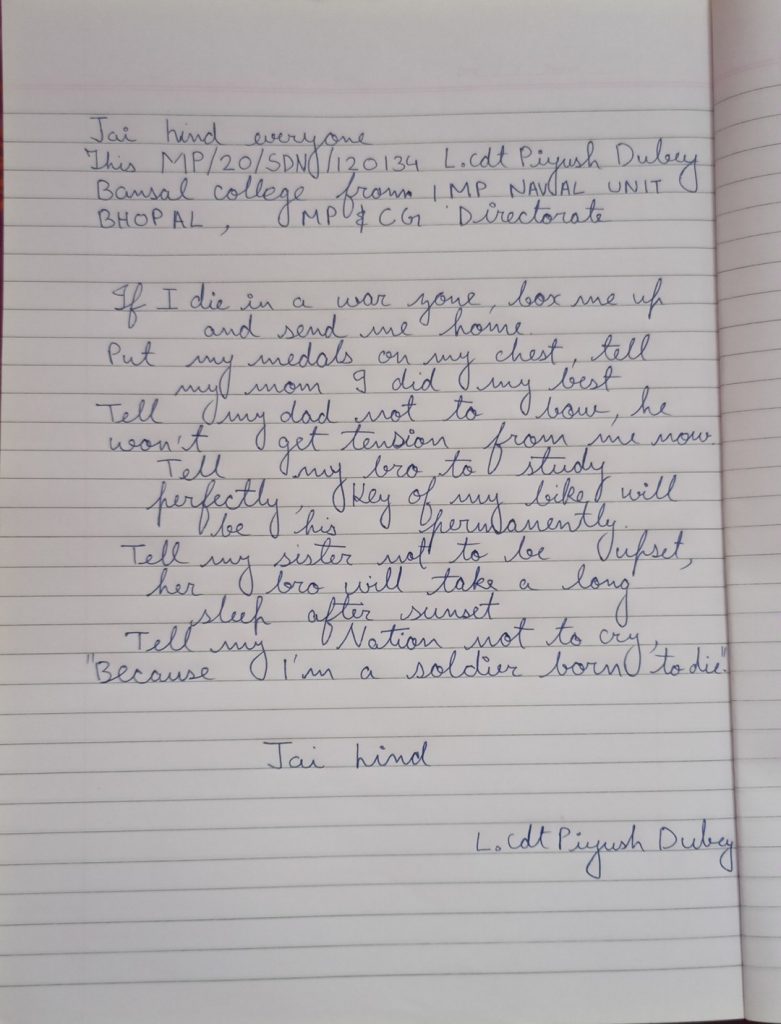 Jai hind everyone
This MP/20/SDN/120134 L.cdt Piyush Dubey
Bansal college from 1 MP NAVAL UNIT
BHOPAL, MP & CG Directorate
If I die in a war zone, box me up
and send me home.
Put my medals on my chest, tell
my mom I did my best
Tell my dad not to bow, he
won't get tension from me now.
Tell my bro to study
perfectly, Key of my bike will
be his permanently.
Tell my sister not to be upset,
her bro will take a long
sleep after sunset
Tell my Nation not to cry,
"Because I'm a soldier born to die."
Jai hind
L.cdt Piyush Dubey